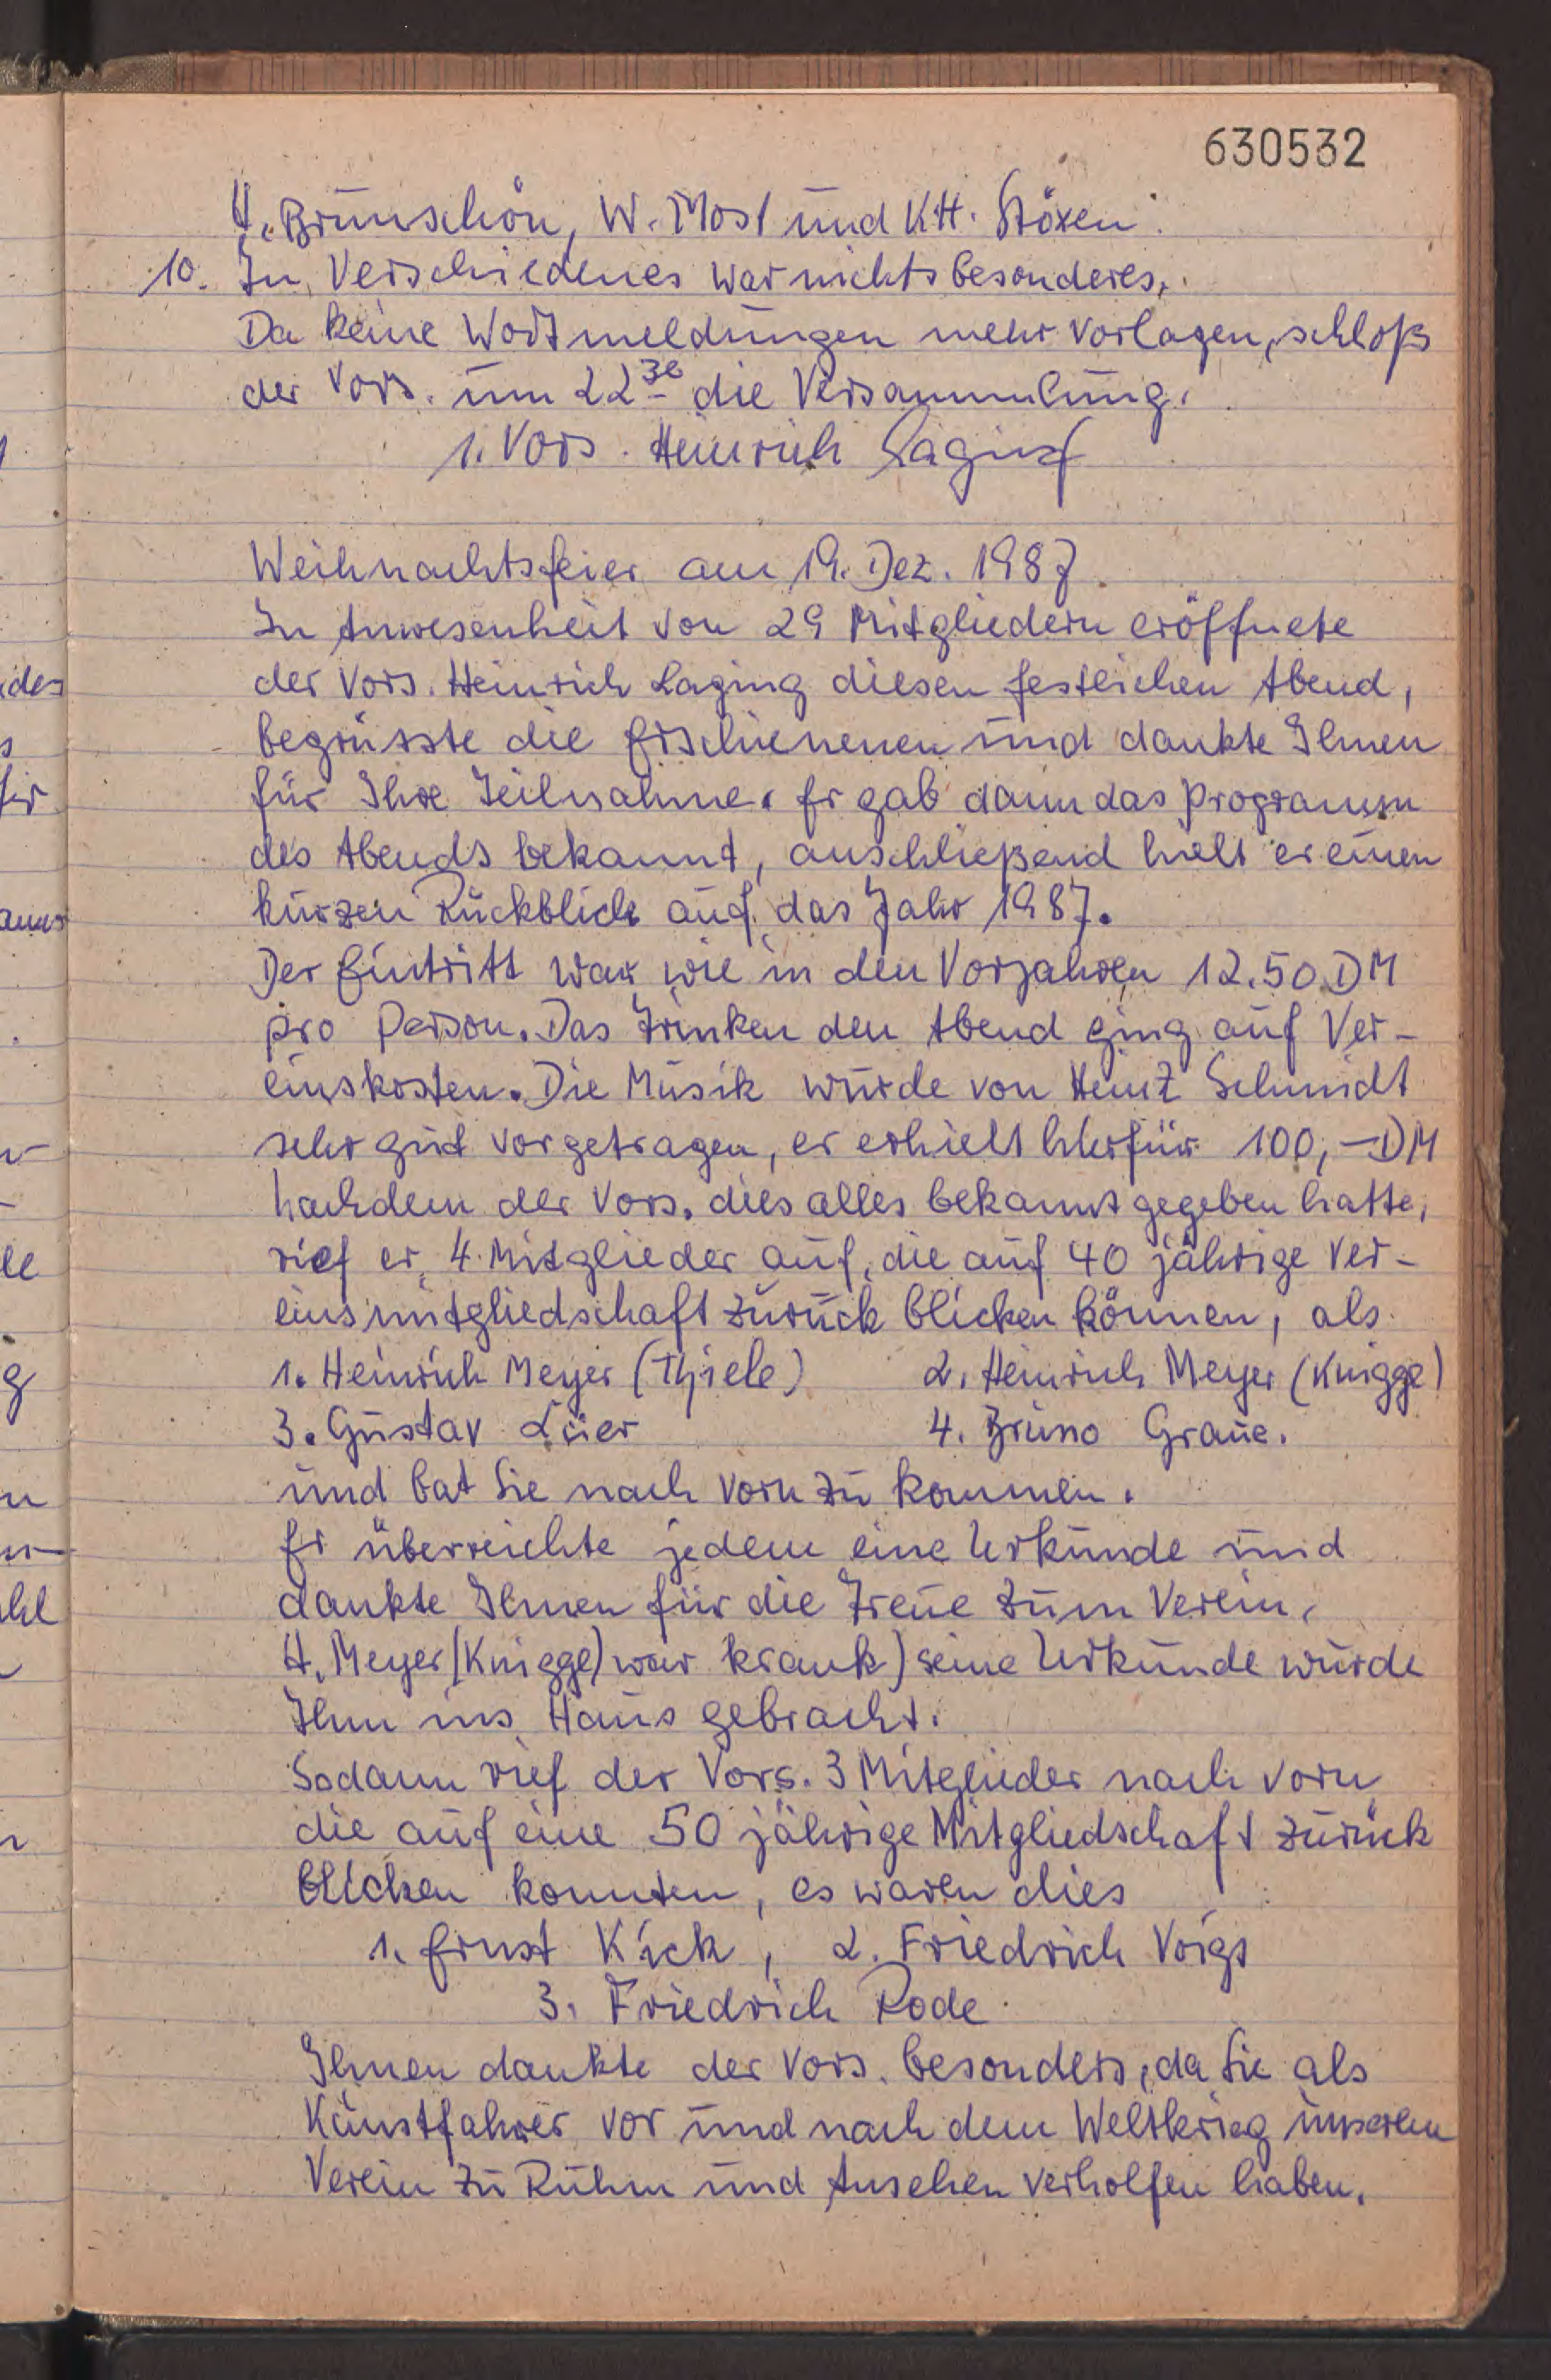 630532
H. Brunschön, W. Most und K.H. Stöxen.
10. In Verschiedenes war nichts besonderes.
Da keine Wortmeldungen mehr vorlagen, schloß
der Vors. um 22³⁰ die Versammlung.
1. Vors. Heinrich Laging
Weihnachtsfeier am 19. Dez. 1987.
In Anwesenheit von 29 Mitgliedern eröffnete
der Vors. Heinrich Laging diesen festlichen Abend,
begrüsste die Erschienenen und dankte Ihnen
für Ihre Teilnahme. Er gab dann das Programm
des Abends bekannt, anschließend hielt er einen
kurzen Rückblick auf das Jahr 1987.
Der Eintritt war, wie in den Vorjahren 12.50 DM
pro Person. Das Trinken den Abend ging auf Ver-
einskosten. Die Musik wurde von Heinz Schmidt
sehr gut vorgetragen, er erhielt hierfür 100,- DM
Nachdem der Vors. dies alles bekannt gegeben hatte,
rief er 4 Mitglieder auf, die auf 40 jährige Ver-
einsmitgliedschaft zurück blicken können, als
1. Heinrich Meyer (Thiele) 2. Heinrich Meyer (Knigge)
3. Gustav Lüer 4. Bruno Graue.
und bat Sie nach vorn zu kommen.
Er überreichte jedem eine Urkunde und
dankte Ihnen für die Treue zum Verein.
H. Meyer (Knigge) war krank) seine Urkunde wurde
Ihm ins Haus gebracht.
Sodann rief der Vors. 3 Mitglieder nach vorn
die auf eine 50 jährige Mitgliedschaft zurück
blicken konnten, es waren dies
1. Ernst Kick, 2. Friedrich Voigs
3. Friedrich Rode.
Ihnen dankte der Vors. besonders, da Sie als
Kunstfahrer vor und nach dem Weltkrieg unseren
Verein zu Ruhm und Ansehen verholfen haben.